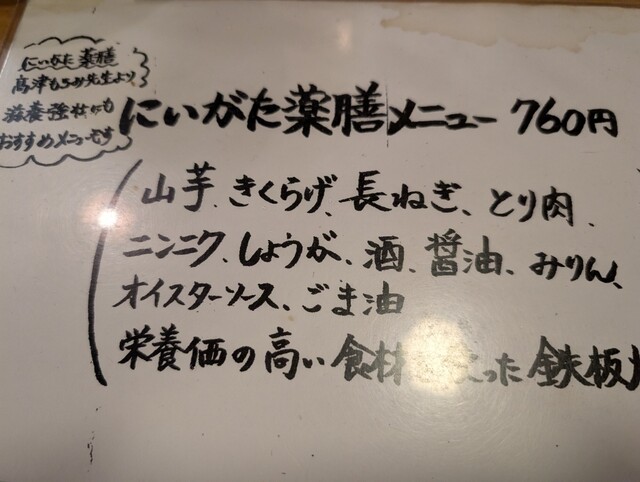 にいがた薬膳
高津もろみ先生より
滋養強壮にも
おすすめメニューです
にいがた薬膳メニュー 760円
山芋、きくらげ、長ねぎ、とり肉、
ニンニク、しょうが、酒、醤油、みりん、
オイスターソース、ごま油
栄養価の高い食材 った鉄板